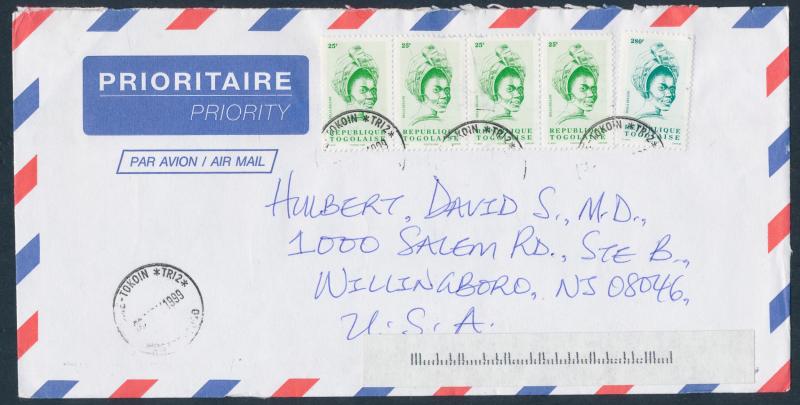 PRIORITAIRE
PRIORITY
PAR AVION / AIR MAIL
25F 25F 25F 25F 280F
REPUBLIQUE TOGOLAISE
REPUBLIQUE TOGOLAISE
REPUBLIQUE TOGOLAISE
REPUBLIQUE TOGOLAISE
REPUBLIQUE TOGOLAISE
TOKOIN *TRI2*
1999
TOKOIN *TRI2*
TOKOIN *TRI2*
HULBERT, DAVID S., M.D.,
1000 SALEM RD., STE B.,
WILLINGBORO, NJ 08046,
U.S.A.
-TOKOIN *TRI2*
1999